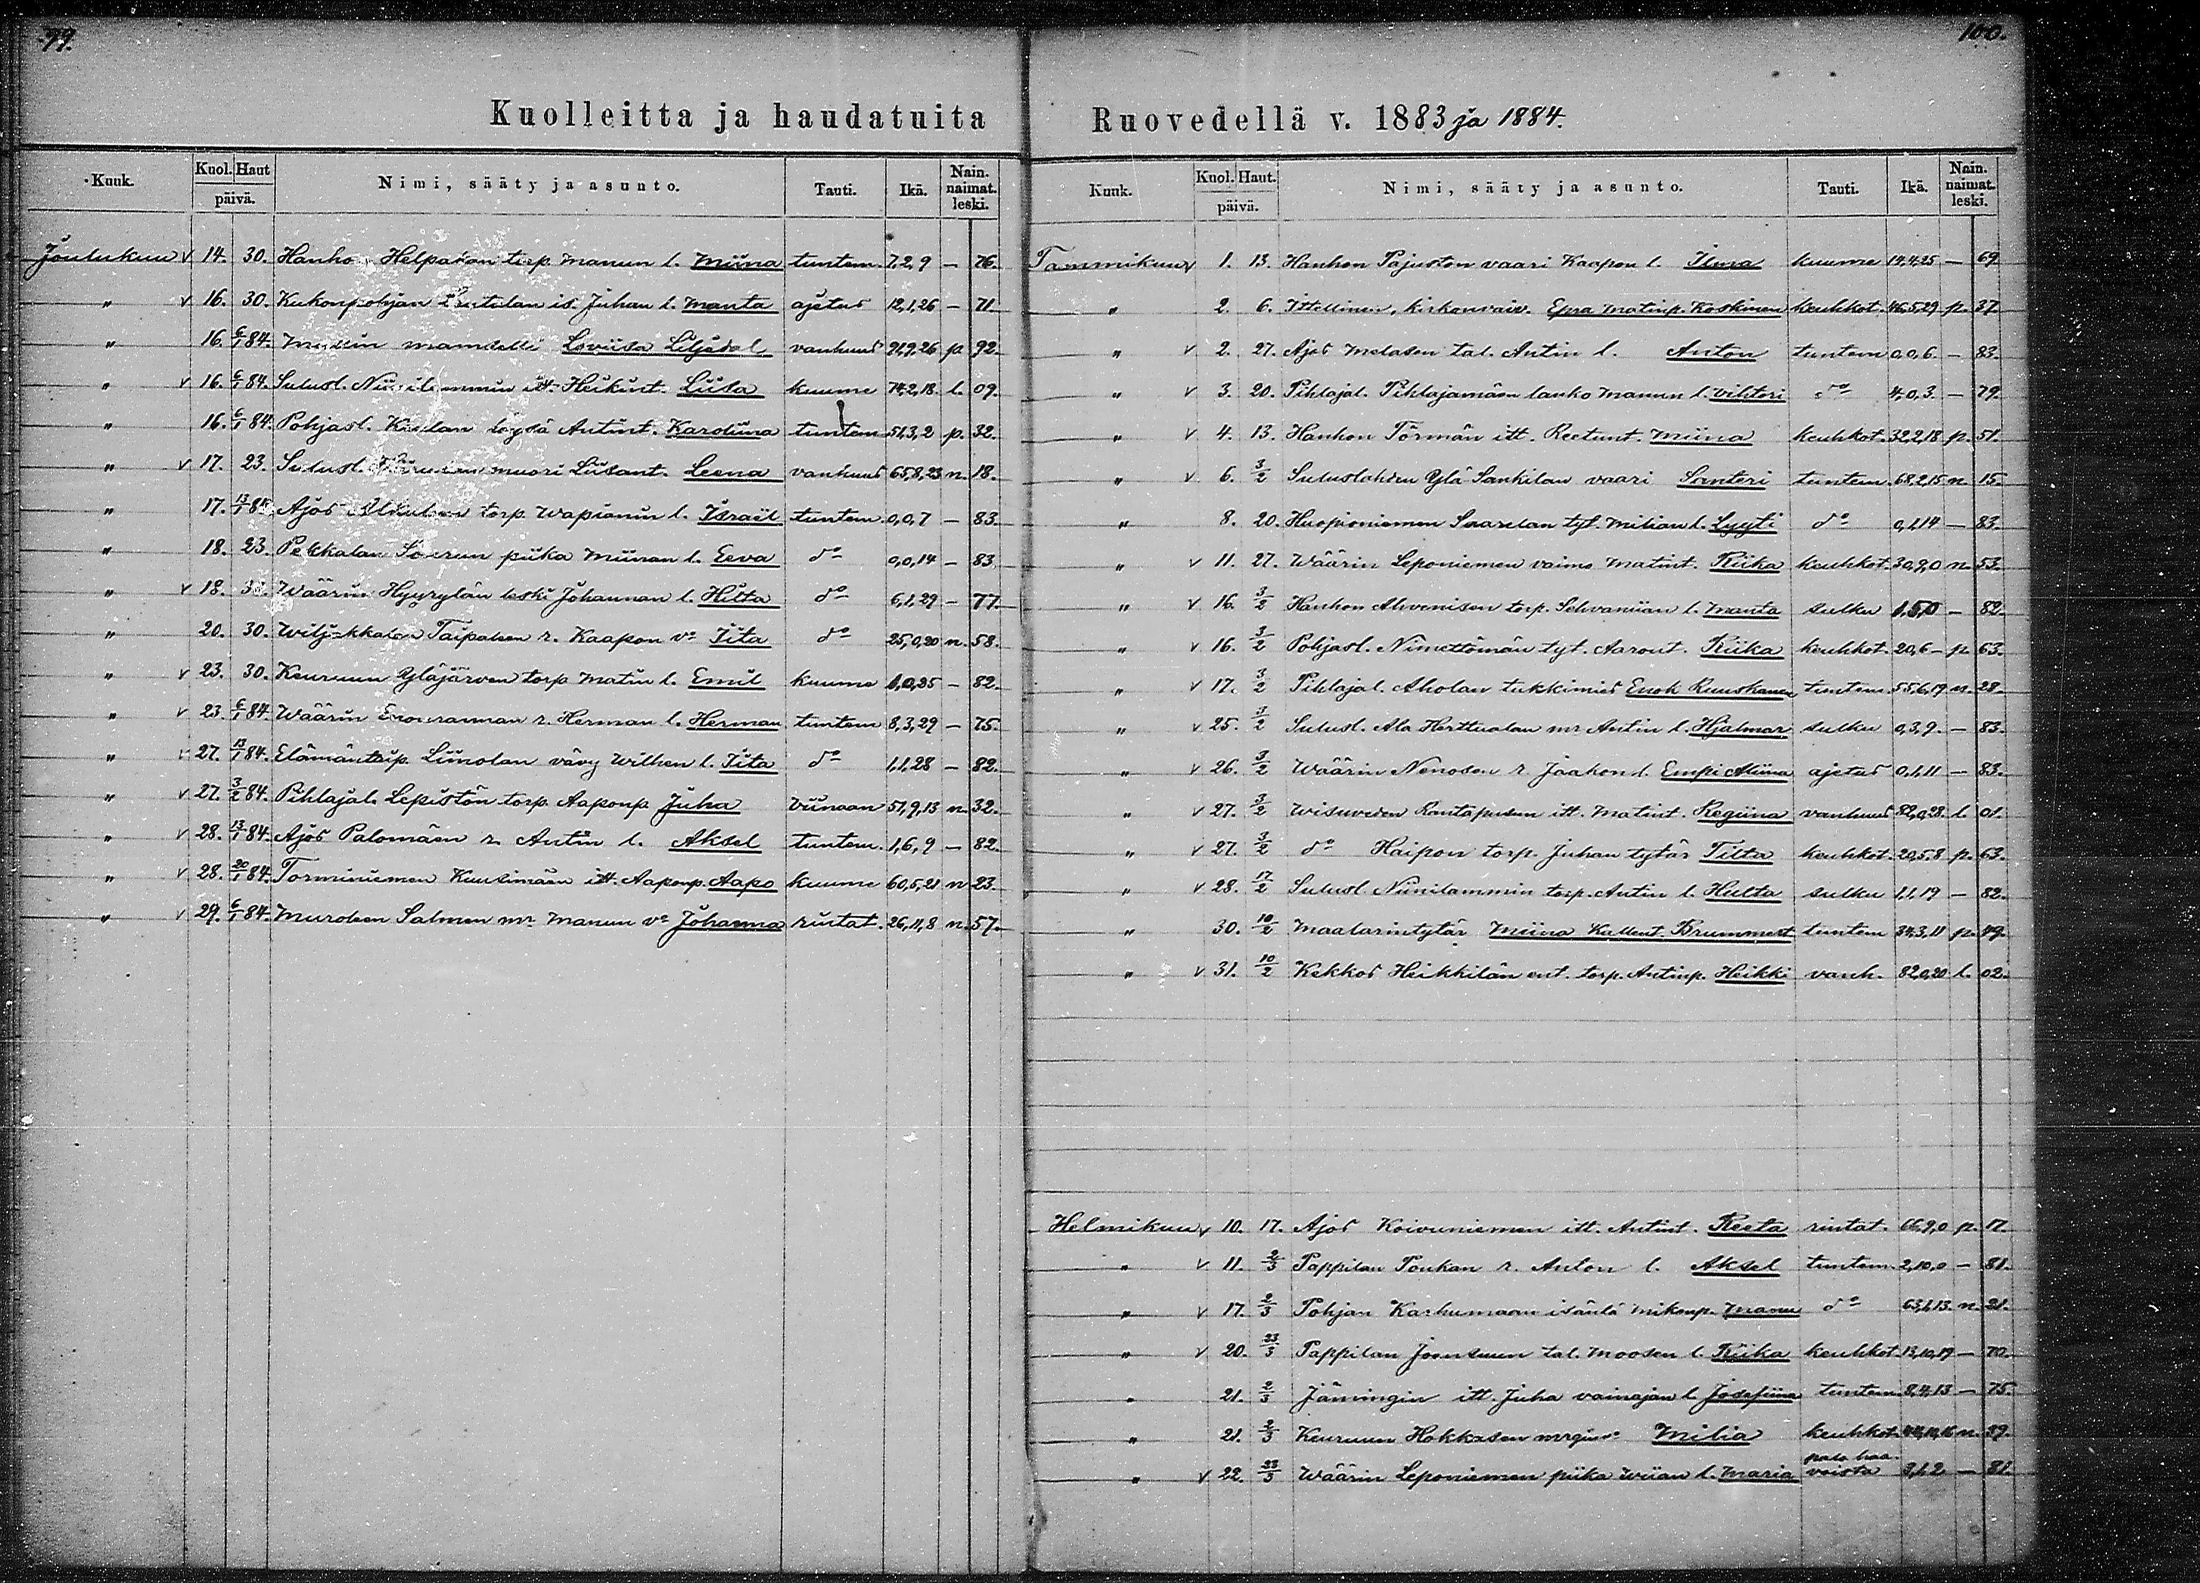 99.
Kuolleitta ja haudatuita
Kuuk. Kuol. Haut päivä. Nimi, sääty ja asunto. Tauti. Ikä. Nain. naimat. leski.
Joulukuu v 14. 30. Hanho Helpakan torp. Manun l. Miina tuntem. 7,2,9 – 76.
" v 16. 30. Kukonpohjan is. Juhan l. Manta ajetus 12,1,26 – 71.
" 16. 6/1 84. mamselli Loviisa Liljedal vanhuus 91,9,26 p. 92.
" v 16. 6/1 84. Sulusl. Niinilammin itt. Heikint. Liisa kuume 74,2,18 l. 09.
" 16. 6/1 84. Pohjasl. löysä Antint. Karoliina tuntem 51,3,2 p. 32.
" v 17. 23. Sulusl. muori Liisant. Leena vanhuus 65,8,23 n. 18.
" 17. 13/1 84. Ajos torp. Wapianin l. Israël tuntem 0,0,7 – 83.
" 18. 23. Pekkalan piika Miinan l. Eeva do 0,0,14 – 83.
" v 18. Wäärin Hyyrylän leski Johannan l. Hilta do 6,1,29 – 77.
" 20. 30. Wiljakkalan Taipaleen r. Kaapon vo Iita do 25,0,20 n. 58.
" v 23. 30. Keuruun Yläjärven torp. Matin l. Emil kuume 1,0,25 – 82.
" v 23. 6/1 84. Wäärin r. Herman l. Herman tuntem 8,3,29 – 75.
" v 27. 13/1 84. Limolan vävy Wilhen l. Iita do 1,1,28 – 82.
" v 27. 3/2 84. Pihlajal. Lepistön torp. Aaponp. Juha viinaan 51,9,13 n. 32.
" v 28. 13/1 84. Ajos Palomäen r. Antin l. Aksel tuntem. 1,6,9 – 82.
" v 28. 20/1 84. Torminiemen Kuusimäen itt. Aaponp. Aapo kuume 60,5,21 n 23.
" v 29. 6/1 84. Muroleen Salmen mr. Manun vo Johanna rintat. 26,11,8 n. 57.
100.
Ruovedellä v. 1883 ja 1884.
Kuuk. Kuol. Haut. päivä. Nimi, sääty ja asunto. Tauti. Ikä. Nain. naimat. leski.
Tammikuu v 1. 13. Hanhon Pajuston vaari Kaapon l. Ilma kuume 14,4,25 – 69.
" 2. 6. Ittellinen, kirkonvaiv. Epra Matinp. Koskinen keuhkot. 46,5,29 p. 37.
" v 2. 27. Ajos Melasen tal. Antin l. Anton tuntem 0,0,6. – 83.
" v 3. 20. Pihlajal. Pihlajamäen lanko Manun l. Vihtori do 4,0,3. – 79.
" v 4. 13. Hanhon Törmän itt. Reetunt. Miina keuhkot. 32,2,18 p. 51.
" v 6. 3/2 Suluslahden Ylä-Sankilan vaari Santeri tuntem. 68,2,15 n. 15.
" 8. 20. Huopioniemen Saarelan tyt. Milian l. Lyyti do 0,1,14 – 83.
" v 11. 27. Wäärin Leponiemen vaimo Matint. Riika keuhkot. 30,9,0 n. 53.
" v 16. 3/2 Hanhon Ahvenisen torp. Sehvaniian l. Manta sulku 1,5,0 – 82.
" v 16. 3/2 Pohjasl. Nimettömän tyt. Aaront. Riika keuhkot. 20,6 – p. 63.
" v 17. 3/2 Pihlajal. Aholan tukkimies Enok Ruuskanen tuntem. 55,6,19 n. 28.
" v 25. 3/2 Sulusl. Ala Herttualan mr Antin l. Hjalmar sulku 0,3,9. – 83.
" v 26. 3/2 Wäärin Nenosen r. Jaakon l. Empi Aliina ajetus 0,1,11 – 83.
" v 27. 3/2 Wisuveden Rantapusun itt. Matint. Regiina vanhuus 82,0,28 l. 01.
" v 27. 3/2 do Haipon torp. Juhan tytär Tilta keuhkot. 20,5,8 p. 63.
" v 28. 17/2 Sulusl. Niinilammin torp. Antin l. Hulta sulku 1,1,19 – 82.
" 30. 10/2 Maalarintytär Miina Kallent. Brummert tuntem 34,3,11 p. 49.
" v 31. 10/2 Kekkos Heikkilän ent. torp. Antinp. Heikki vanh. 82,0,20 l. 02.
Helmikuu v 10. 17. Ajos Koivuniemen itt. Antint. Reeta rintat. 66,9,0 p. 17.
" v 11. 2/3 Pappilan Poukan r. Anton l. Aksel tuntem. 2,10,0 – 81.
" v 17. 2/3 Pohjan Karhumaan isäntä Mikonp. Manu do 63,1,13. n. 21.
" v 20. 23/3 Pappilan Joensuun tal. Moosen l. Riika keuhkot. 13,10,19 – 70.
" 21. 2/3 Jäminginn itt. Juha vainajan l. Josefiina tuntem. 8,4,13 – 75.
" 21. 2/3 Keuruun Hokkasen Milia keuhkot. n. 39.
" v 22. 23/3 Wäärin Leponiemen piika Wiian l. Maria palo haavoista 3,1,2 – 81.